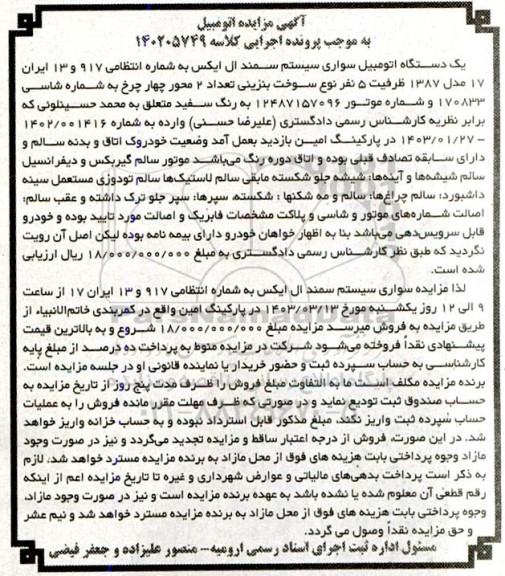 آگهی مزایده اتومبیل
به موجب پرونده اجرایی کلاسه ۱۴۰۲۰۵۷۴۹
یک دستگاه اتومبیل سواری سیستم سمند ال ایکس به شماره انتظامی ۹۱۷ و ۱۳ ایران
۱۷ مدل ۱۳۸۷ ظرفیت ۵ نفر نوع سوخت بنزینی تعداد ۲ محور چهار چرخ به شماره شاسی
۱۷۰۸۳۳ و شماره موتور ۱۲۴۸۷۱۵۷۰۹۶ به رنگ سفید متعلق به محمد حسینلوئی که
برابر نظریه کارشناس رسمی دادگستری (علیرضا حسنی) وارده به شماره ۱۴۰۲/۰۰۱۴۱۶
– ۱۴۰۳/۰۱/۲۷ در پارکینگ امین بازدید بعمل آمد وضعیت خودروک اتاق و بدنه سالم و
دارای سابقه تصادف قبلی بوده و اتاق دوره رنگ می‌باشد موتور سالم گیربکس و دیفرانسیل
سالم شیشه‌ها و آینه‌ها: شیشه جلو شکسته مابقی سالم لاستیک‌ها سالم تودوزی مستعمل سینه
داشبورد: سالم چراغ‌ها: سالم و مه شکنها : شکسته، سپرها: سپر جلو ترک داشته و عقب سالم:
اصالت شماره‌های موتور و شاسی و پلاکت مشخصات فابریک و اصالت مورد تایید بوده و خودرو
قابل سرویس‌دهی می‌باشد بنا به اظهار خواهان خودرو دارای بیمه نامه بوده لیکن اصل آن رویت
نگردید که طبق نظر کارشناس رسمی دادگستری به مبلغ ۱۸/۰۰۰/۰۰۰/۰۰۰ ریال ارزیابی
شده است.
لذا مزایده سواری سیستم سمند ال ایکس به شماره انتظامی ۹۱۷ و ۱۳ ایران ۱۷ از ساعت
۹ الی ۱۲ روز یکشنبه مورخ ۱۴۰۳/۰۳/۱۳ در پارکینگ امین واقع در کمربندی خاتم‌الانبیاء از
طریق مزایده به فروش میرسد مزایده مبلغ ۱۸/۰۰۰/۰۰۰/۰۰۰ شروع و به بالاترین قیمت
پیشنهادی نقداً فروخته می‌شود شرکت در مزایده منوط به پرداخت ده درصد از مبلغ پایه
کارشناسی به حساب سپرده ثبت و حضور خریدار یا نماینده قانونی او در جلسه مزایده است.
برنده مزایده مکلف است ما به التفاوت مبلغ فروش را ظرف مدت پنج روز از تاریخ مزایده به
حساب صندوق ثبت تودیع نماید و در صورتی که ظرف مهلت مقرر مانده فروش را به عملیات
حساب سپرده ثبت واریز نکند، مبلغ مذکور قابل استرداد نبوده و به حساب خزانه واریز خواهد
شد. در این صورت، فروش از درجه اعتبار ساقط و مزایده تجدید می‌گردد و نیز در صورت وجود
مازاد وجوه پرداختی بابت هزینه های فوق از محل مازاد به برنده مزایده مسترد خواهد شد. لازم
به ذکر است پرداخت بدهی‌های مالیاتی و عوارض شهرداری و غیره تا تاریخ مزایده اعم از اینکه
رقم قطعی آن معلوم شده یا نشده باشد به عهده برنده مزایده است و نیز در صورت وجود مازاد،
وجوه پرداختی بابت هزینه های فوق از محل مازاد به برنده مزایده مسترد خواهد شد و نیم عشر
و حق مزایده نقداً وصول می گردد.
مسئول اداره ثبت اجرای اسناد رسمی ارومیه– منصور علیزاده و جعفر فیضی